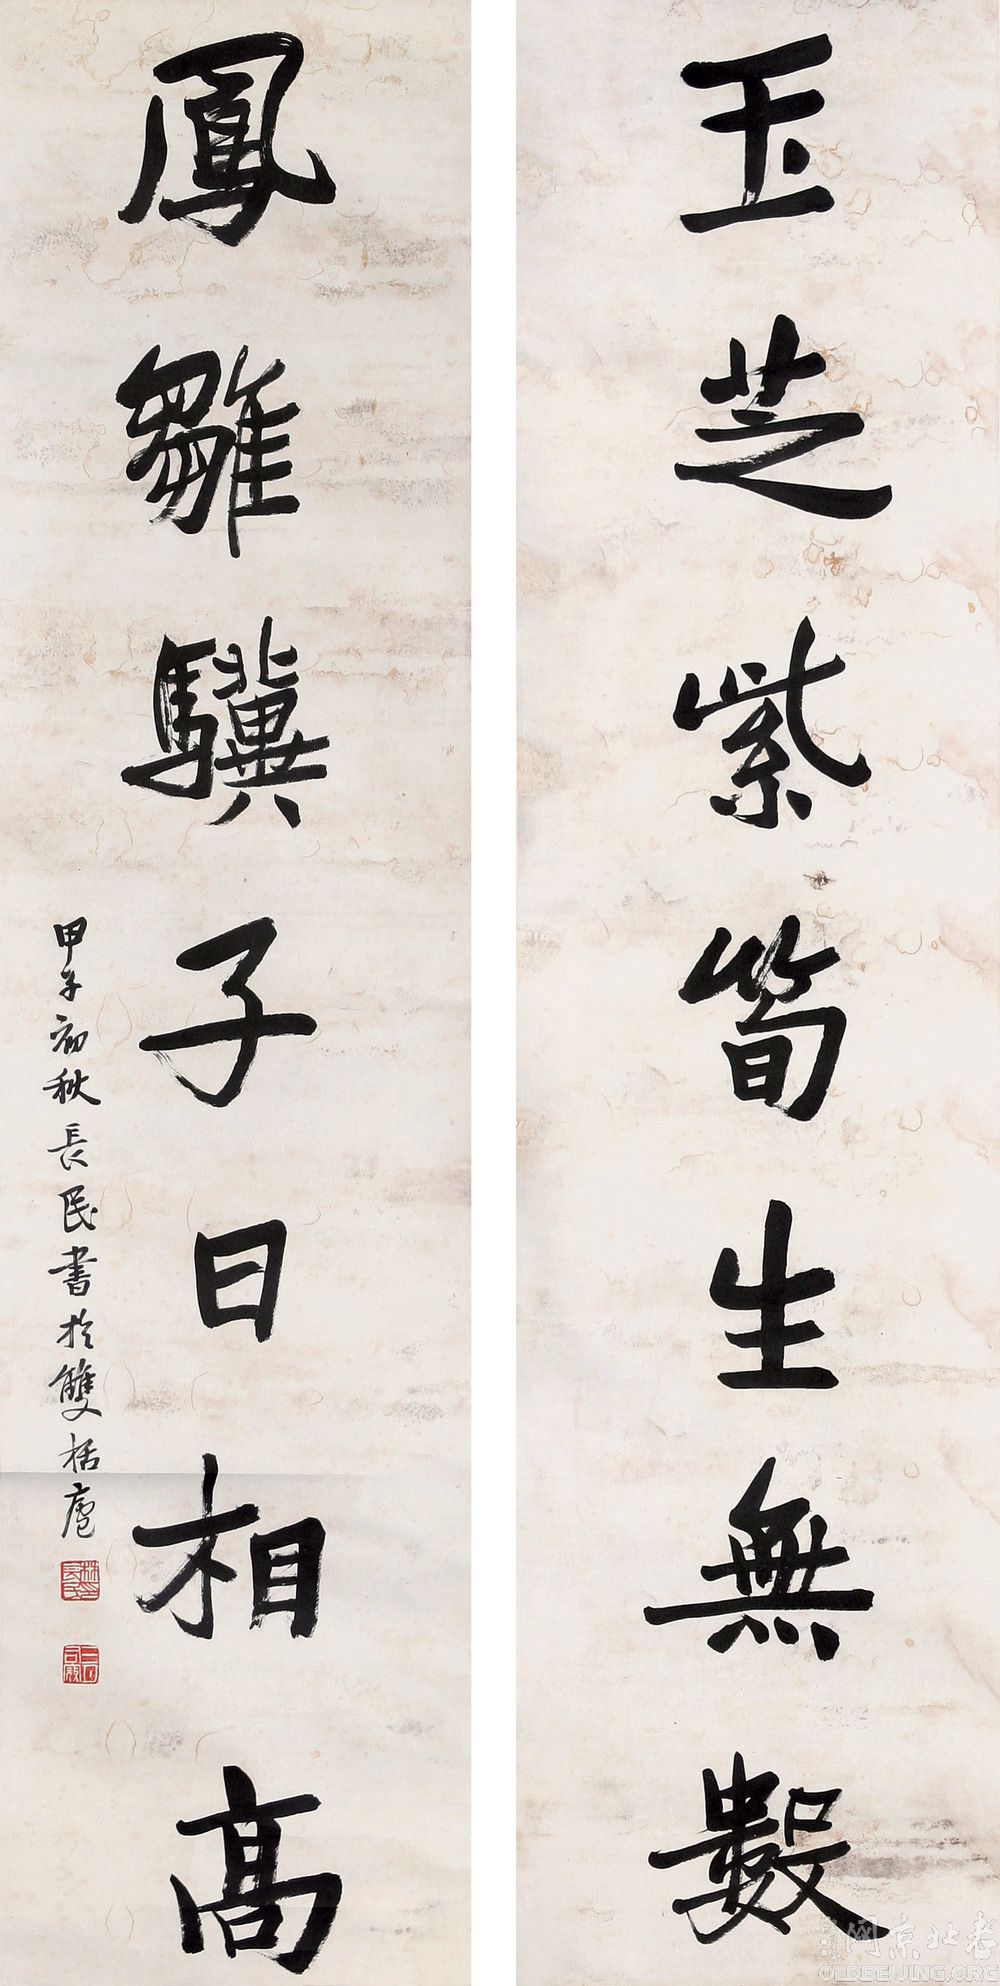 玉芝紫筍生無數
鳳雛驥子日相高
甲子初秋長民書於雙栝廬
林長民印
老北京网
OLDBEIJING.ORG